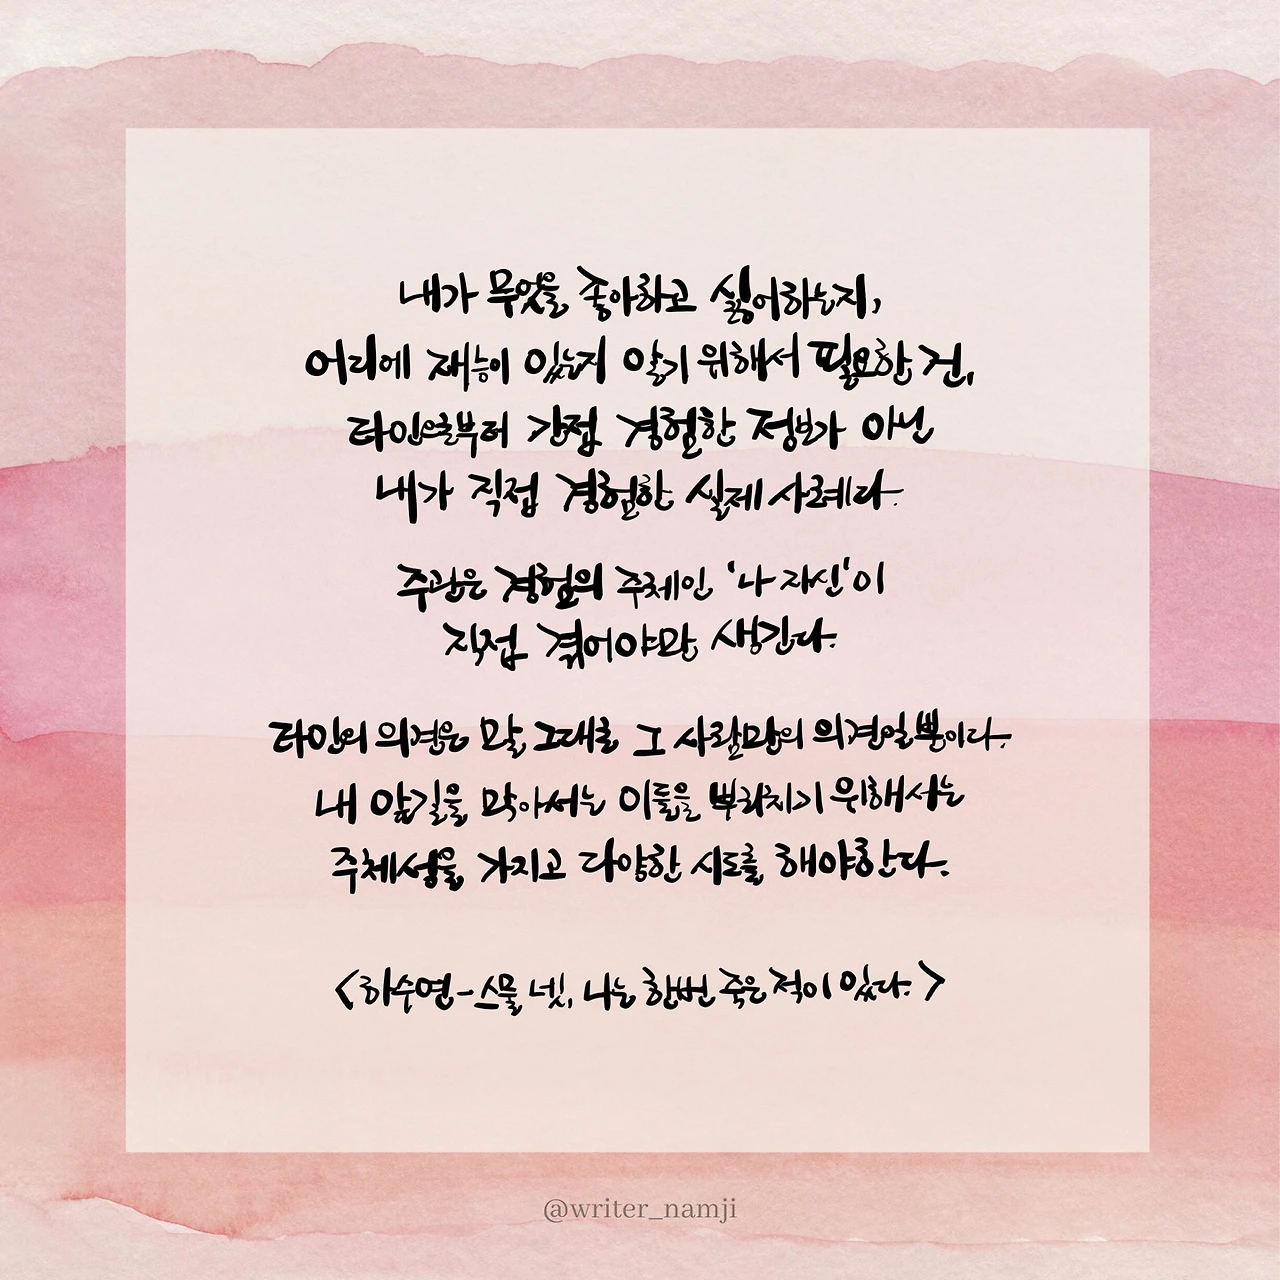 내가 무엇을 좋아하고 싫어하는지,
어디에 재능이 있는지 알기 위해서 필요한 건,
타인으로부터 간접 경험한 정보가 아닌
내가 직접 경험한 실제 사례다.
주관은 경험의 주체인 '나 자신'이
직접 겪어야만 생긴다.
타인의 의견은 말 그대로 그 사람만의 의견일 뿐이다.
내 앞길을 막아서는 이들을 뿌리치기 위해서는
주체성을 가지고 다양한 시도를 해야한다.
<하수연-스물 넷, 나는 한번 죽은 적이 있다.>
@writer_namji